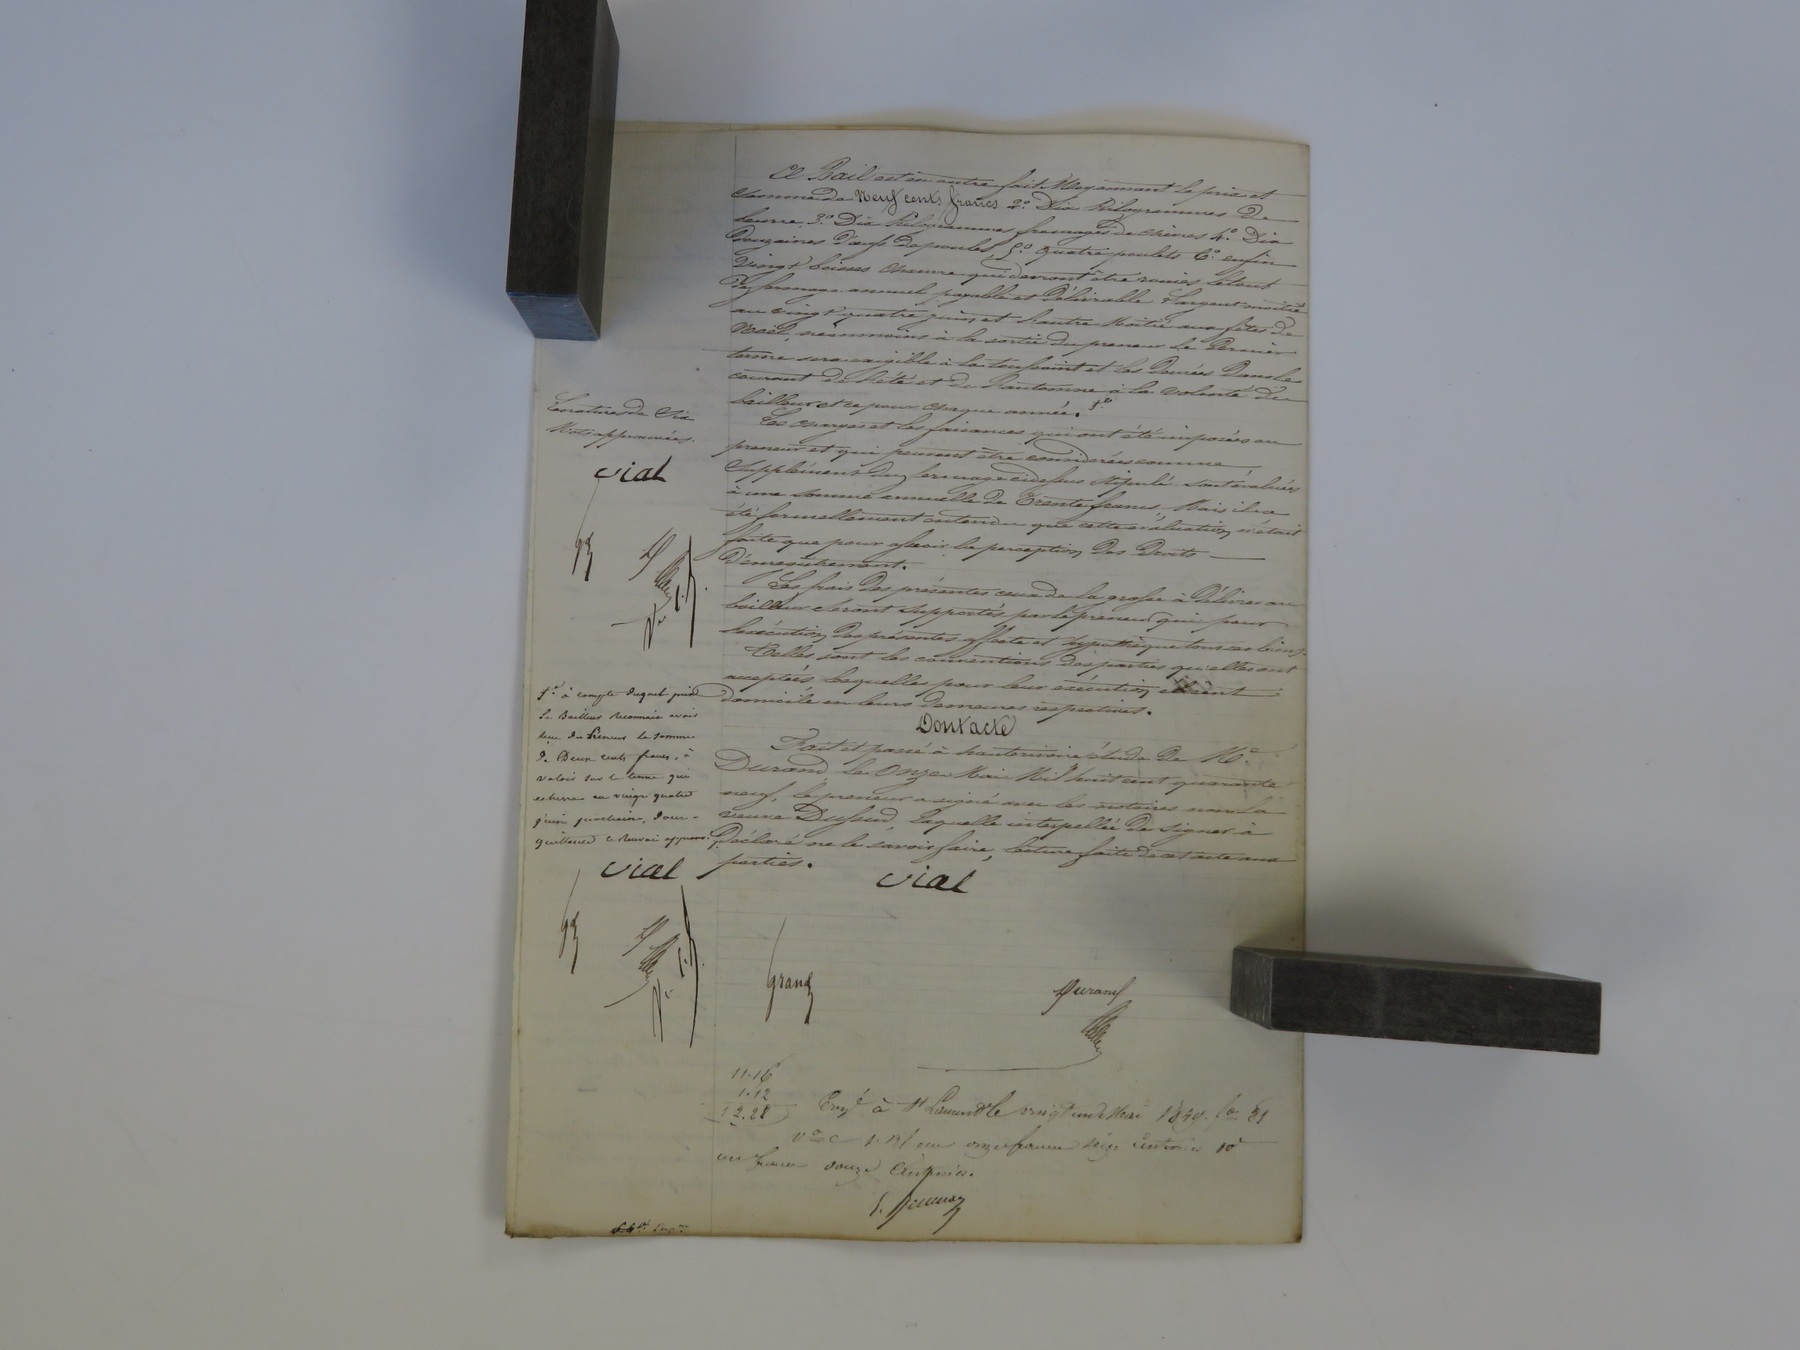 Ce Bail est en outre fait Moyennant le prix et
somme de Neuf cents francs 2º. Dix Kilogrammes de
beurre 3º. Dix Kilogrammes fromages de chèvres 4º. Dix
Douzaines d'œufs de poules, 5º. quatre poulets 6º. enfin
vingt boisses chanvre qui devront être rouies le tout
de fermage annuel payable et délivrable l'argent moitié
au vingt quatre juin et l'autre Moitié aux fêtes de
Noël, néanmoins à la sortie du preneur le Dernier
terme sera exigible à la toussaint et les Denrées Dans le
courant de l'été et de l'automne à la volonté de
bailleur et ce pour chaque année.
Les charges et les faisances qui ont été imposées au
preneur et qui peuvent être considérées comme
Supplément du fermage cidessus stipulé sont évaluées
à une somme annuelle de Trente francs, Mais il a
été formellement entendu que cette évaluation n'était
faite que pour asseoir la perception Des Droits
D'enregistrement.
Les frais Des présentes ceux de la grosse à Délivrer au
bailleur seront supportés par le preneur qui pour
l'exécution des présentes affecte et hypothèque tous ses biens.
Telles sont les conventions des parties qu'elles ont
acceptées lesquelles pour leur exécution élisent
domicile en leurs demeures respectives.
Dont acte
Fait et passé à hauterivoire étude De Me.
Durand le Onze Mai Mil huit cent quarante
neuf, le preneur a signé avec les notaires non la
veuve Dussud laquelle interpellée De signer a
Déclaré ne le savoir faire, lecture faite de cet acte aux
parties.
Vial
grand
Durand
Les ratures de Six
Mots approuvées.
Vial
à compte duquel prix
Le Bailleur reconnait avoir
reçu du Preneur la somme
de Deux cents francs, à
valoir sur le terme qui
echerra au vingt quatre
juin prochain, Dont
quittance ce renvoi approuvé
Vial
11.16
1.12
12.28
Engé à St Laurent le vingt un Mai 1849. fo 81
vo c
onze francs seize Centimes
un franc douze Centimes.